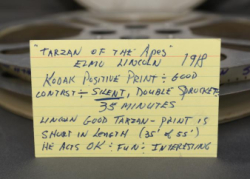 "TARZAN OF THE "APES"
ELMO LINCOLN 1918
KODAK POSITIVE PRINT ÷ GOOD
CONTRST ÷ SILENT, DOUBLE SPROCKETS
35 MINUTES
LINCOLN GOOD TARZAN - PRINT IS
SHORT IN LENGTH (35' OF 55')
HE ACTS OK ÷ FUN ÷ INTERESTING